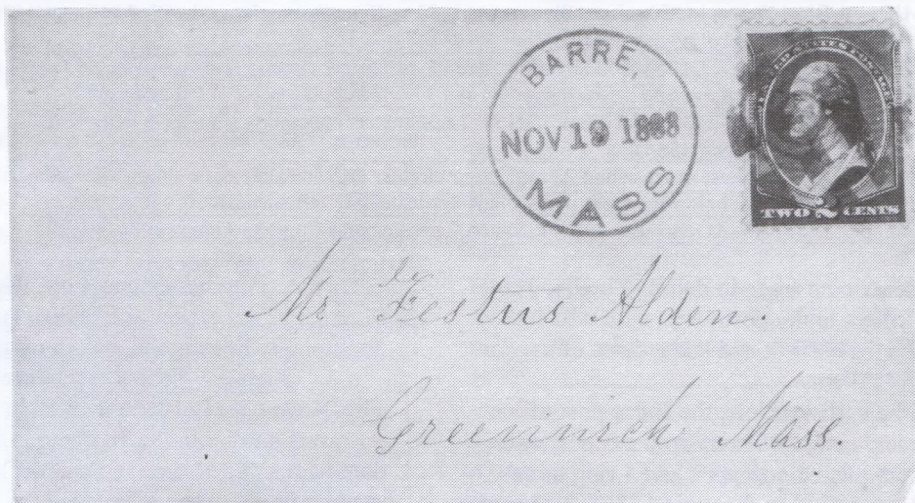 BARRE,
NOV 19 1888
MASS
UNITED STATES POSTAGE
TWO 2 CENTS
Mr Festus Alden.
Greenwich Mass.